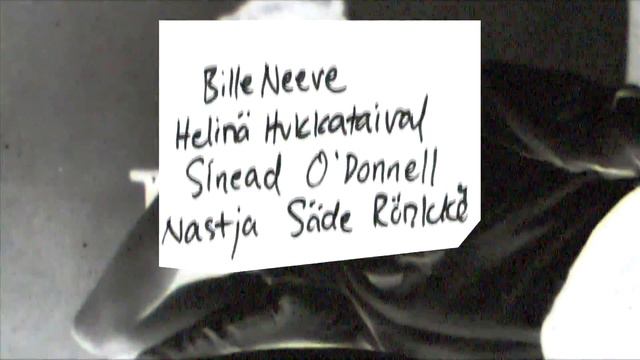 Bille Neeve
Helinä Hukkataival
Sínead O'Donnell
Nastja Säde Rönkkö